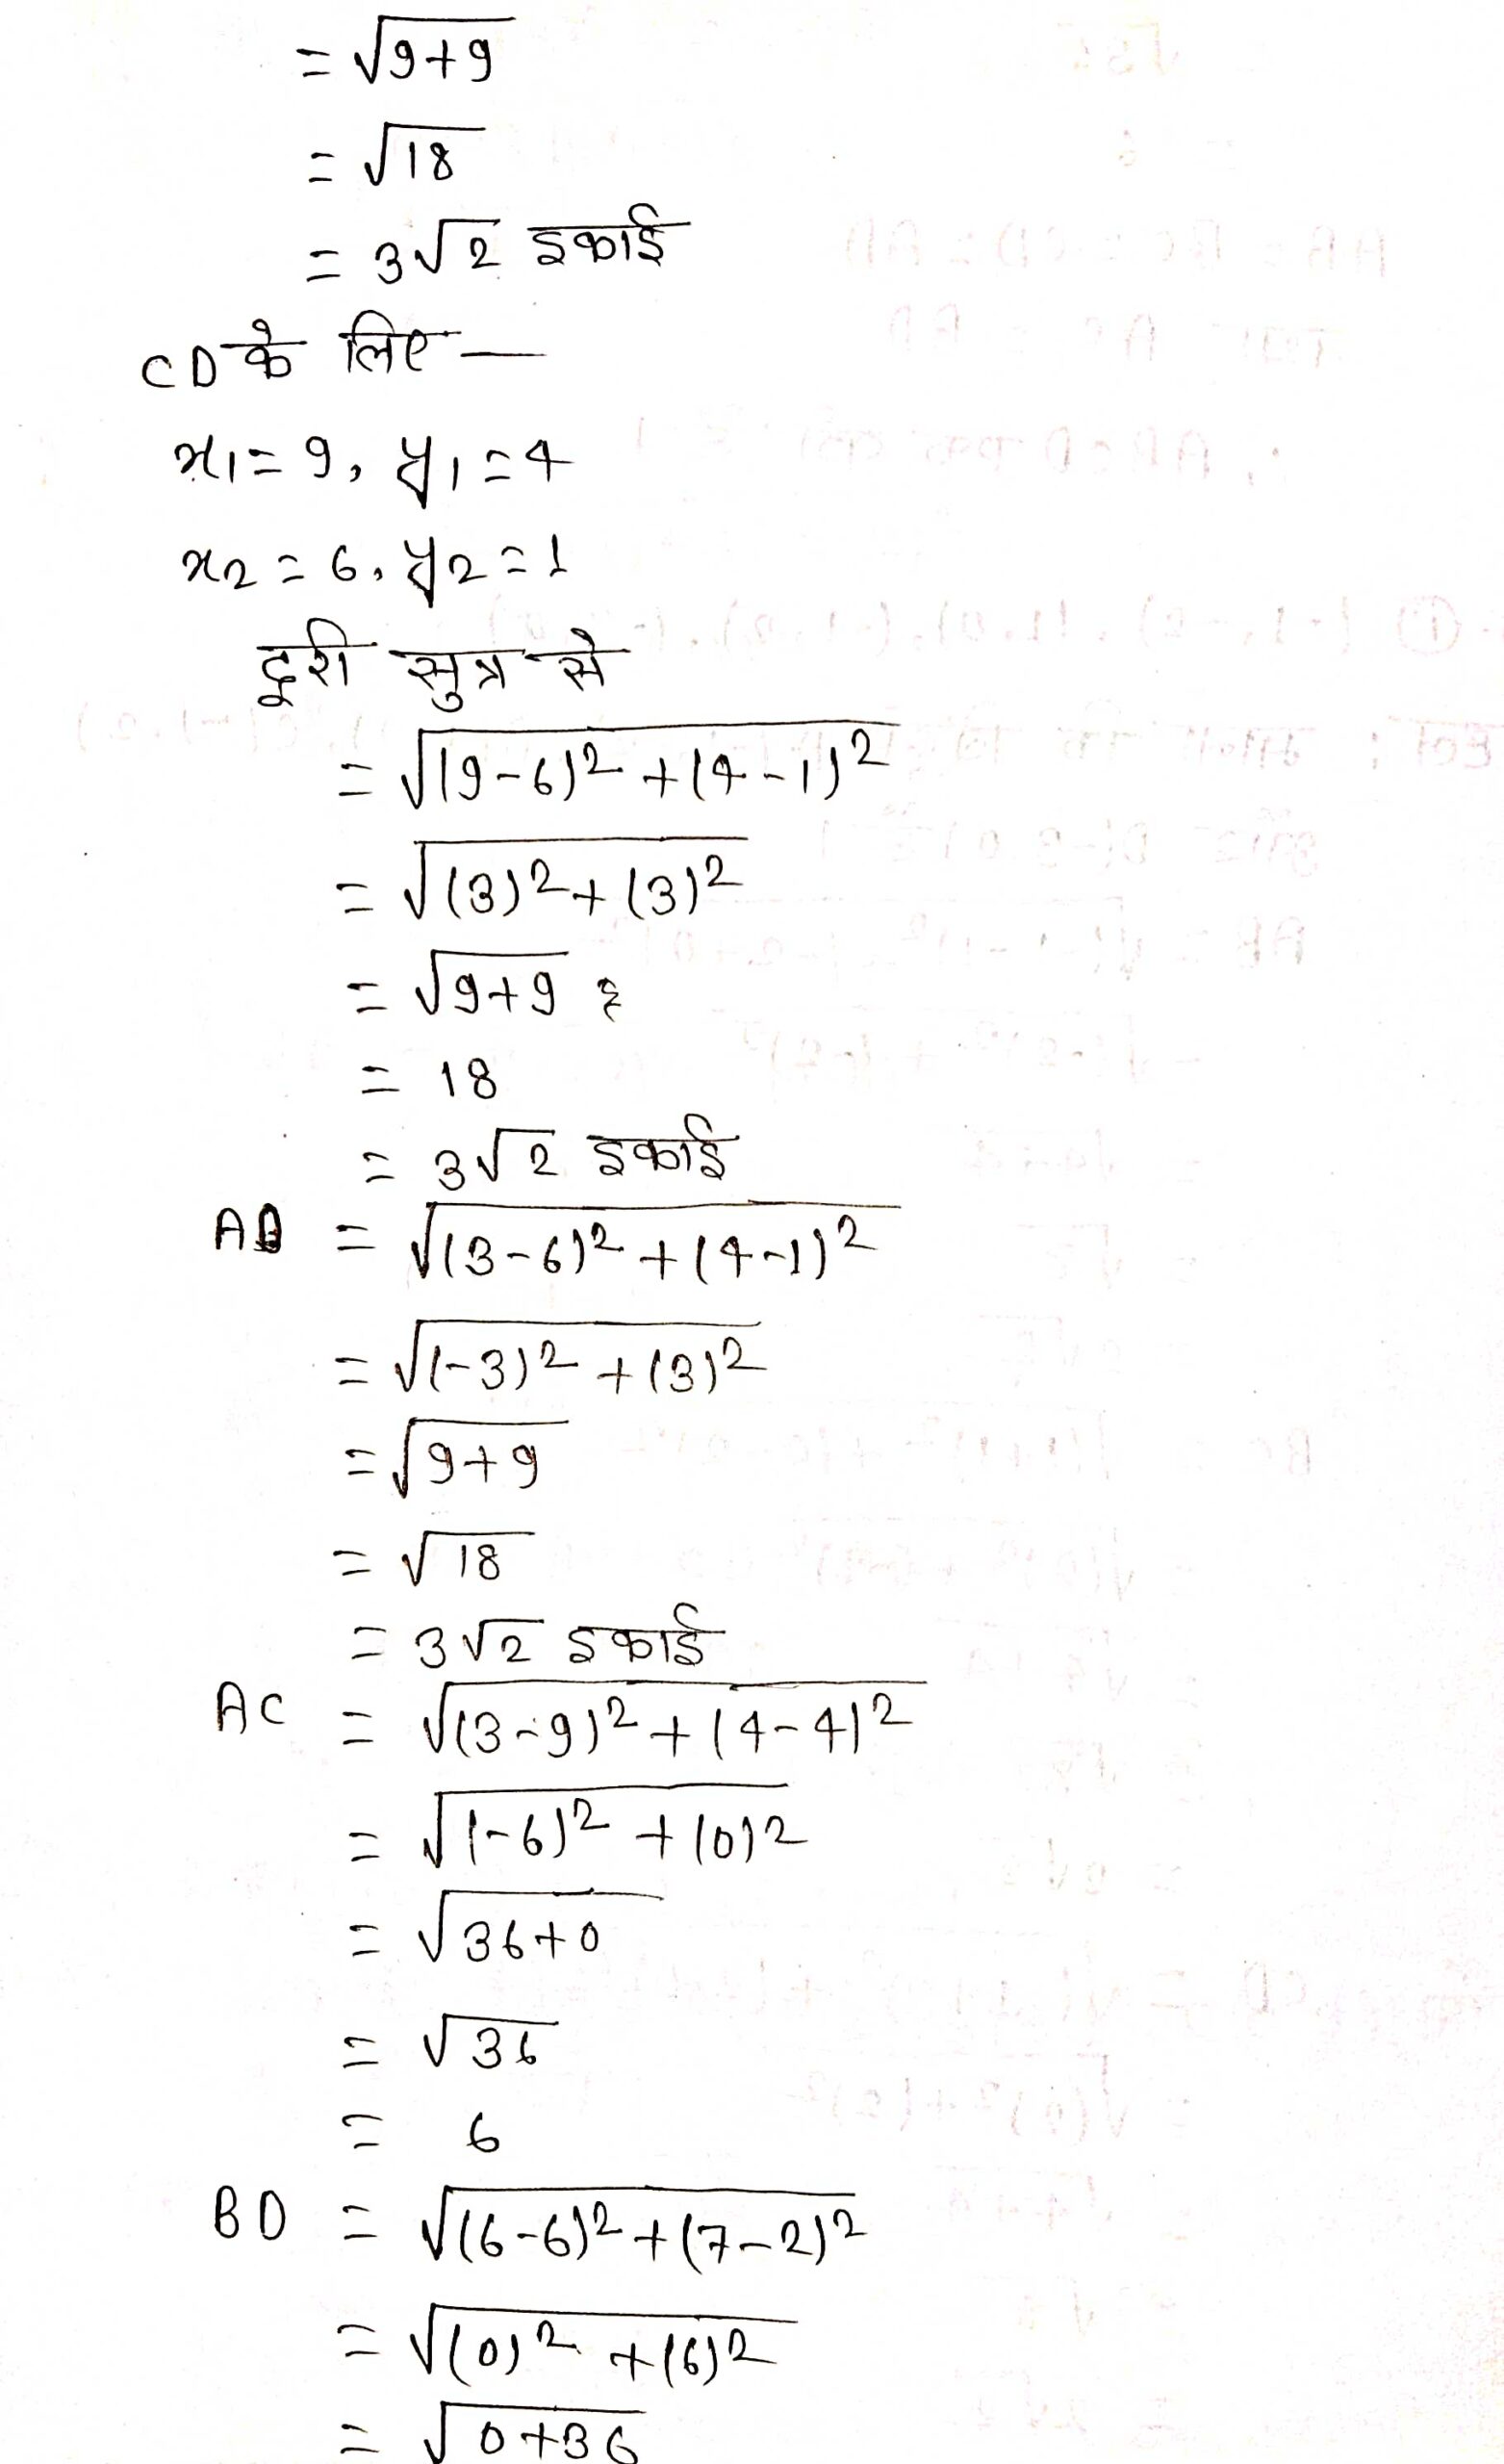 = √9+9
= √18
= 3√2 इकाई
CD के लिए —
x1 = 9, y1 = 4
x2 = 6, y2 = 1
दूरी सुत्र से
= √(9-6)² + (4-1)²
= √(3)² + (3)²
= √9+9
= 18
= 3√2 इकाई
AD = √(3-6)² + (4-1)²
= √(-3)² + (3)²
= √9+9
= √18
= 3√2 इकाई
AC = √(3-9)² + (4-4)²
= √(-6)² + (0)²
= √36+0
= √36
= 6
BD = √(6-6)² + (7-2)²
= √(0)² + (6)²
= √0+36